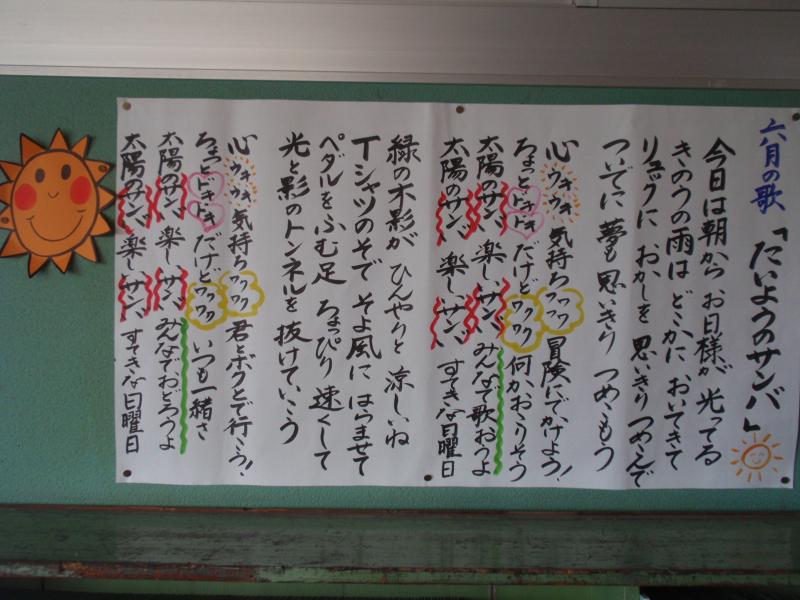 六月の歌 「たいようのサンバ」
今日は朝から お日様が 光ってる
きのうの雨は どこかに おいてきて
リュックに おかしを 思いきり つめこんで
ついでに 夢も 思いきり つめこもう
心 ウキウキ 気持ち ワクワク 冒険にでかけよう!
ちょっと ドキドキ だけど ワクワク 何かおこりそう
太陽のサンバ 楽しいサンバ みんなで歌おうよ
太陽のサンバ 楽しいサンバ すてきな日曜日
緑の木影が ひんやりと 涼しいね
Tシャツのそで そよ風に はらませて
ペダルをふむ足 ちょっぴり 速くして
光と影のトンネルを 抜けていこう
心 ウキウキ 気持ち ワクワク 君とボクとで行こう!
ちょっと ドキドキ だけど ワクワク いつも一緒さ
太陽のサンバ 楽しいサンバ みんなでおどろうよ
太陽のサンバ 楽しいサンバ すてきな日曜日